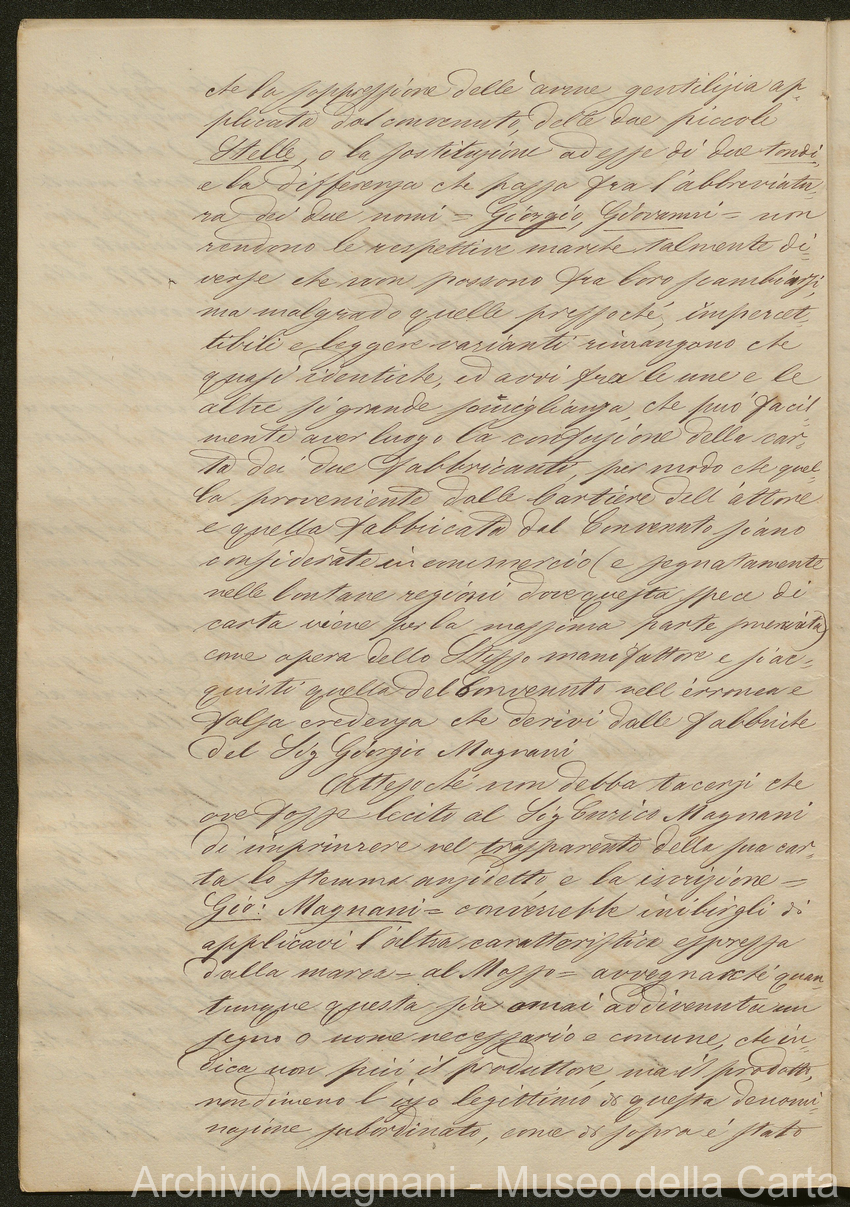 che la soppressione delle arme gentilizia ap-
plicata dal convenuto, delle due piccole
Stelle, o la sostituzione ad esse di due tondi,
e la differenza che passa fra l'abbreviatu-
ra dei due nomi = Giorgio, Giovanni = non
rendono le respettive marche talmente di-
verse che non possono fra loro scambiarsi,
ma malgrado quelle pressoché, impercet-
tibili e leggere varianti rimangono che
quasi identiche, ed avvi fra le une e le
altre sì grande somiglianza, che può facil-
mente aver luogo la confusione della car-
ta dei due Fabbricanti, per modo che quel-
la proveniente dalle Cartiere dell'attore
e quella fabbricata dal Convenuto siano
considerate in commercio (e segnatamente
nelle lontane regioni dove questa spece di
carta viene per la massima parte smerciata)
come opera dello Stesso manifattore e si ac-
quisti quella del Convenuto nell'erronea e
falsa credenza che derivi dalle fabbriche
del Sig Giorgio Magnani
Attesoché non debba tacersi che
ove fosse lecito al Sig Enrico Magnani
di imprimere nel trasparente della sua car-
ta lo stemma anzidetto e la iscrizione =
Gio: Magnani = converrebbe inibirgli di
applicavi l'altra caratteristica espressa
dalla marca = al Masso = avvegnacché quan-
tunque questa sia omai addivenuta un
segno o nome necessario e comune, che in-
dica non più il produttore ma il prodotto,
nondimeno l'uso legittimo di questa denomi-
nazione subordinato, come di sopra è stato
Archivio Magnani - Museo della Carta